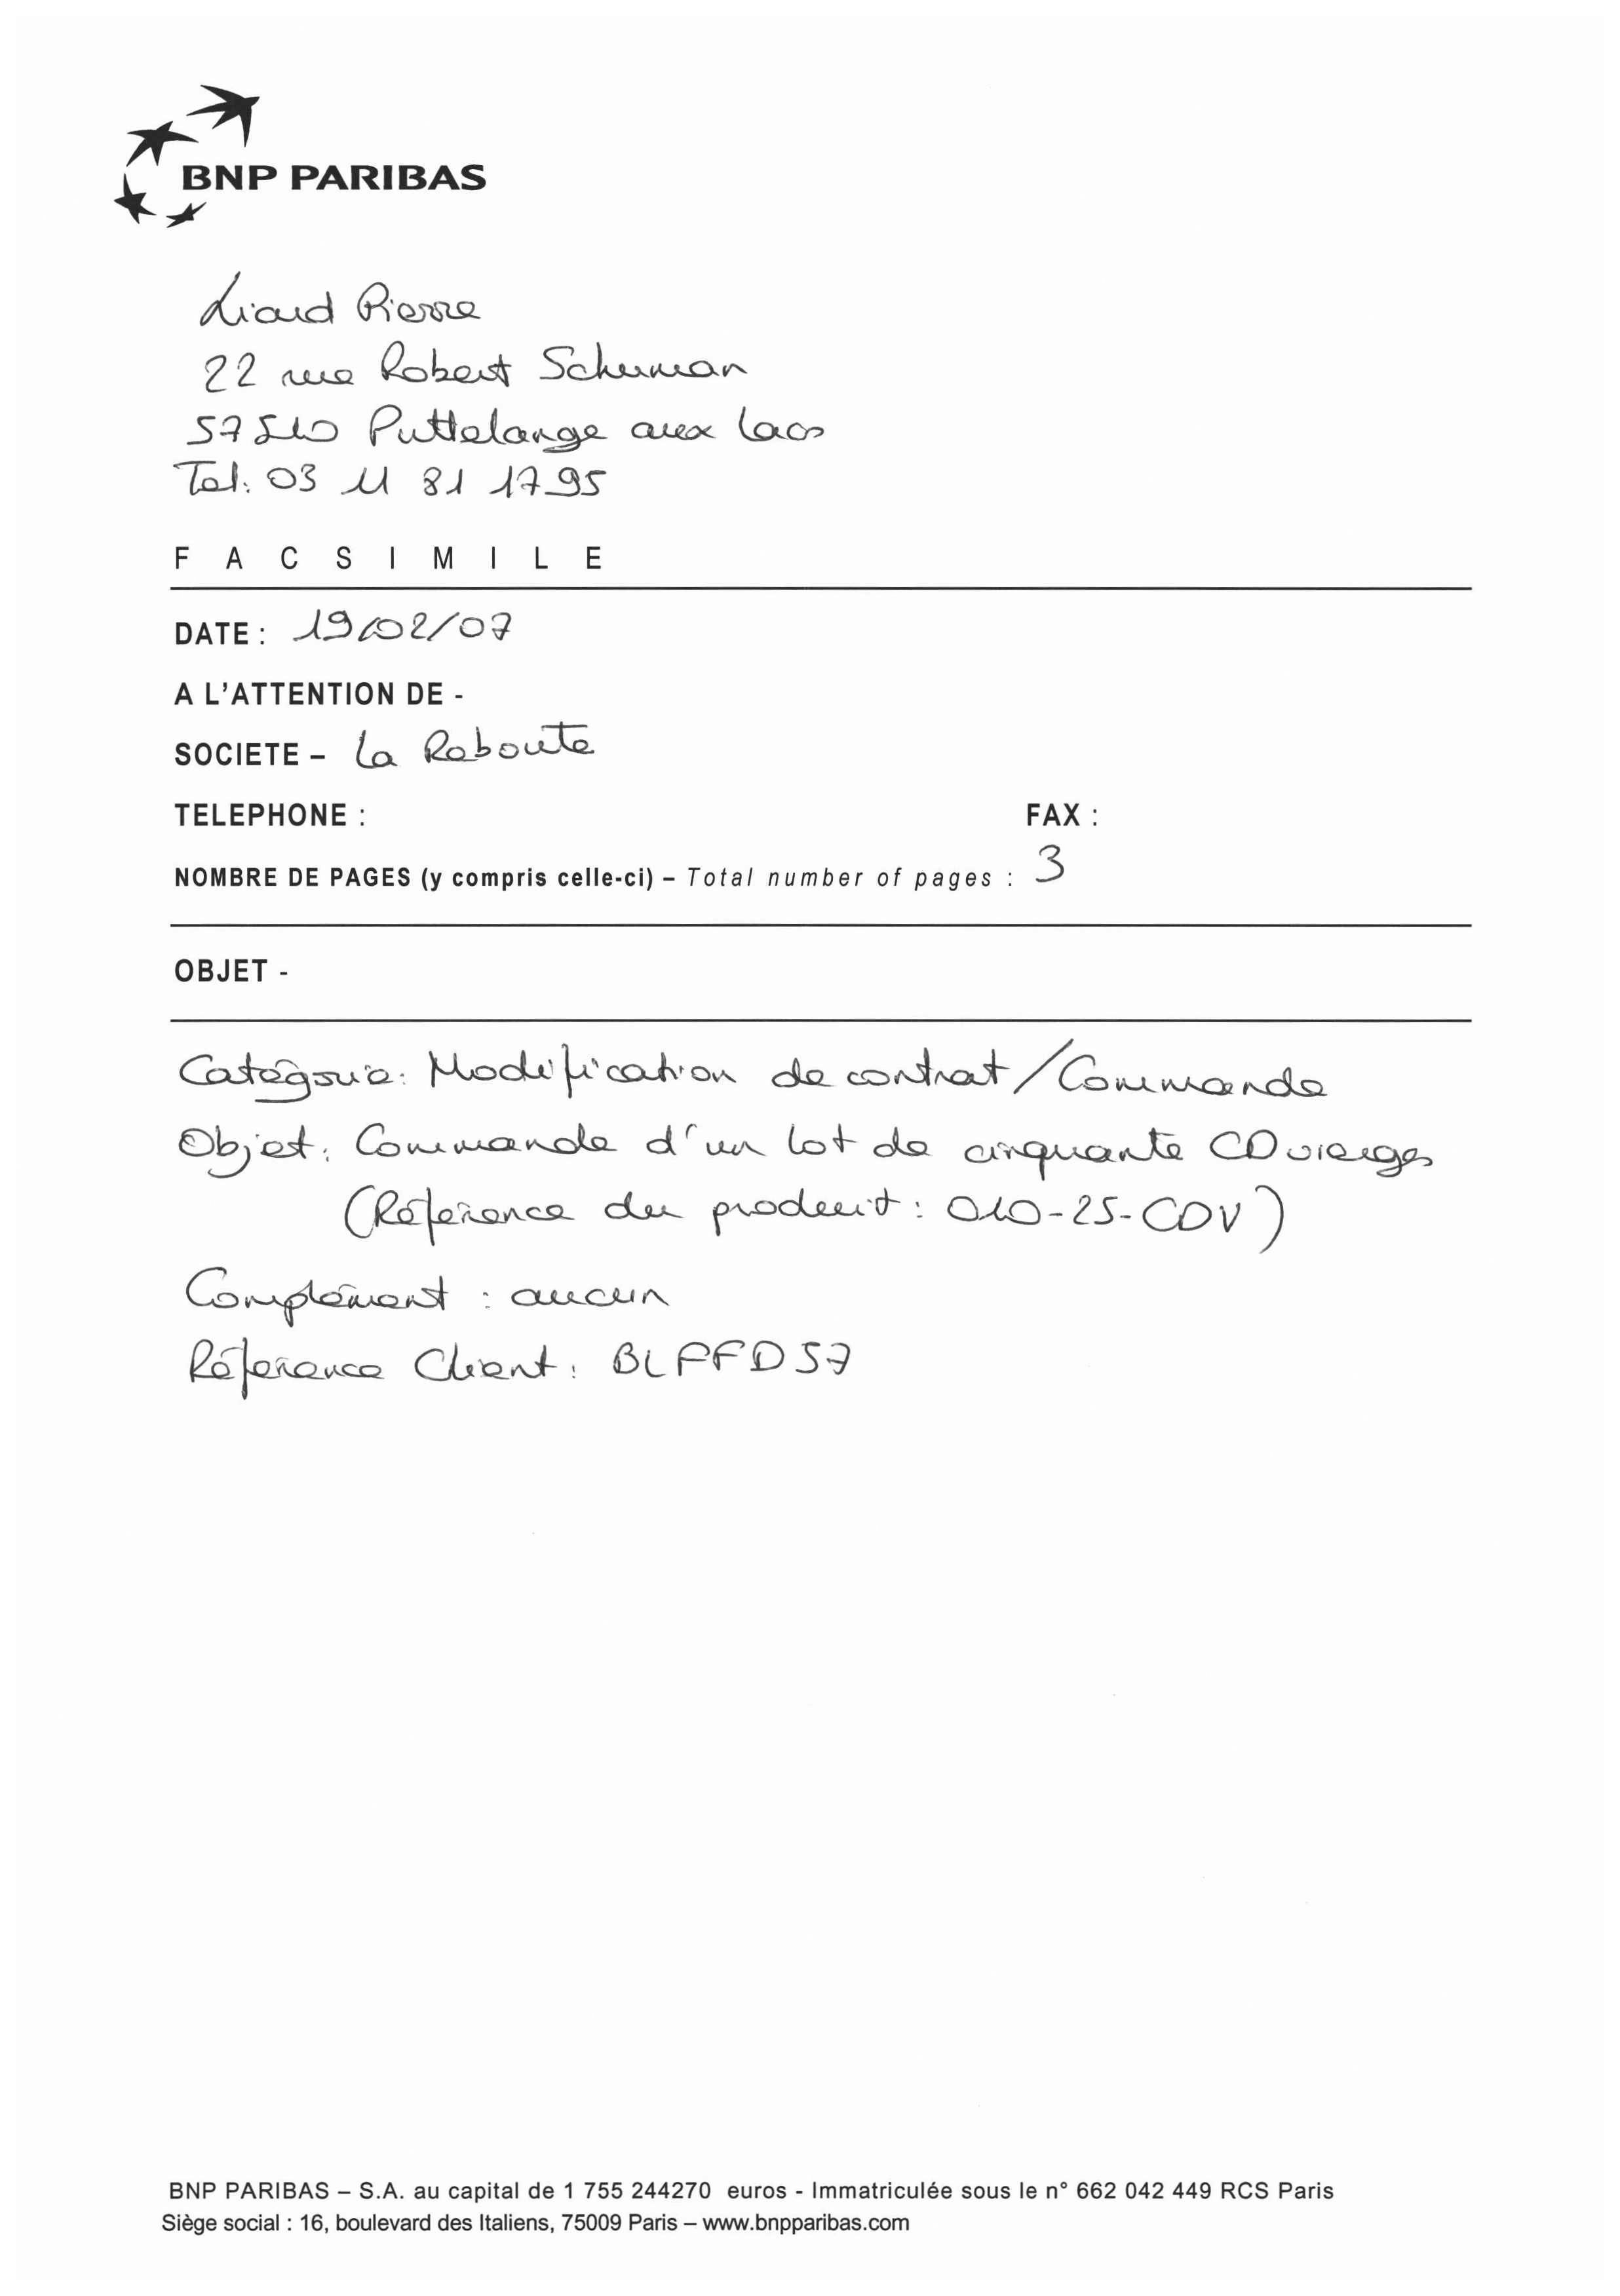 BNP PARIBAS
Liaud Pierre
22 rue Robert Schuman
57510 Puttelange aux Lacs
Tel: 03 11 81 17 95
FACSIMILE
DATE : 19/02/07
A L'ATTENTION DE -
SOCIETE – La Reboute
TELEPHONE : FAX :
NOMBRE DE PAGES (y compris celle-ci) – Total number of pages : 3
OBJET -
Catégorie: Modification de contrat/Commande
Objet: Commande d'un lot de cinquante CD vierges
(Référence du produit : 010-25-CDV)
Complément : aucun
Référence Client : BLPFD57
BNP PARIBAS – S.A. au capital de 1 755 244270 euros - Immatriculée sous le n° 662 042 449 RCS Paris
Siège social : 16, boulevard des Italiens, 75009 Paris – www.bnpparibas.com